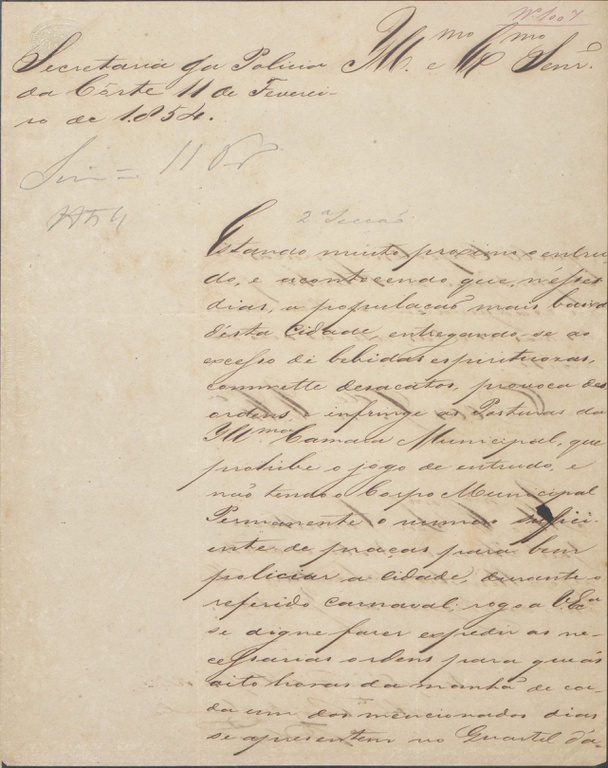 Illmo. e Exmo. Senr.
Secretaria da Policia
da Côrte 11 de Feverei-
ro de 1.854.
Sim = 11 Fev
2ª Secção
Estando muito proximo o entru-
do, e acontecendo que, n'esses
dias, a população mais baixa
d'ésta Cidade, entregando-se ao
excesso de bebidas espirituozas,
commette desacatos, provoca des
ordens, e infringe as Posturas da
Illma Camara Municipal, que
prohibe o jogo de entrudo, e
não tendo o Corpo Municipal
Permanente o numero suffici-
ente de praças para bem
policiar a Cidade, durante o
referido carnaval: rogo a V. Exa
se digne fazer expedir as ne-
cessarias ordens para que ás
oito horas da manhã de ca-
da um dos mencionados dias
se apresentem no Quartel d'a-